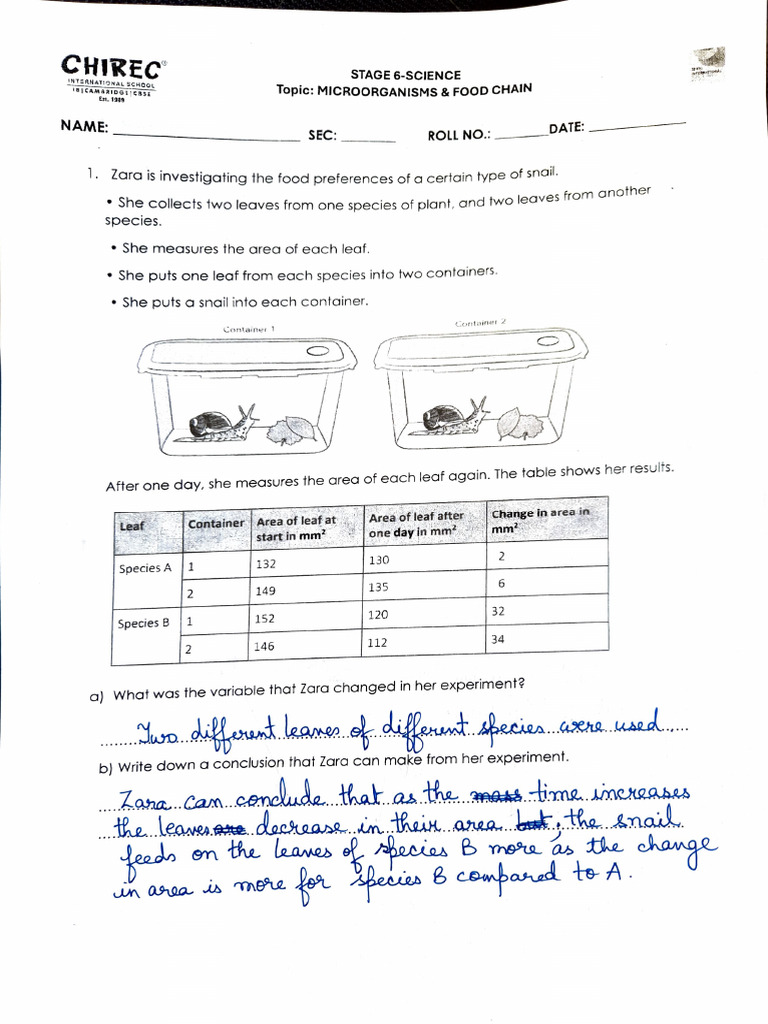 CHIREC®
INTERNATIONAL SCHOOL
IB|CAMBRIDGE|CBSE
Est. 1989
STAGE 6-SCIENCE
Topic: MICROORGANISMS & FOOD CHAIN
NAME: ____________ SEC: ________ ROLL NO.: ________ DATE: ____________
1. Zara is investigating the food preferences of a certain type of snail.
• She collects two leaves from one species of plant, and two leaves from another
species.
• She measures the area of each leaf.
• She puts one leaf from each species into two containers.
• She puts a snail into each container.
Container 1 Container 2
After one day, she measures the area of each leaf again. The table shows her results.
Leaf Container Area of leaf at start in mm² Area of leaf after one day in mm² Change in area in mm²
Species A 1 132 130 2
2 149 135 6
Species B 1 152 120 32
2 146 112 34
a) What was the variable that Zara changed in her experiment?
Two different leaves of different species were used.
b) Write down a conclusion that Zara can make from her experiment.
Zara can conclude that as the mass time increases
the leaves are decrease in their area but, the snail
feeds on the leaves of species B more as the change
in area is more for species B compared to A.